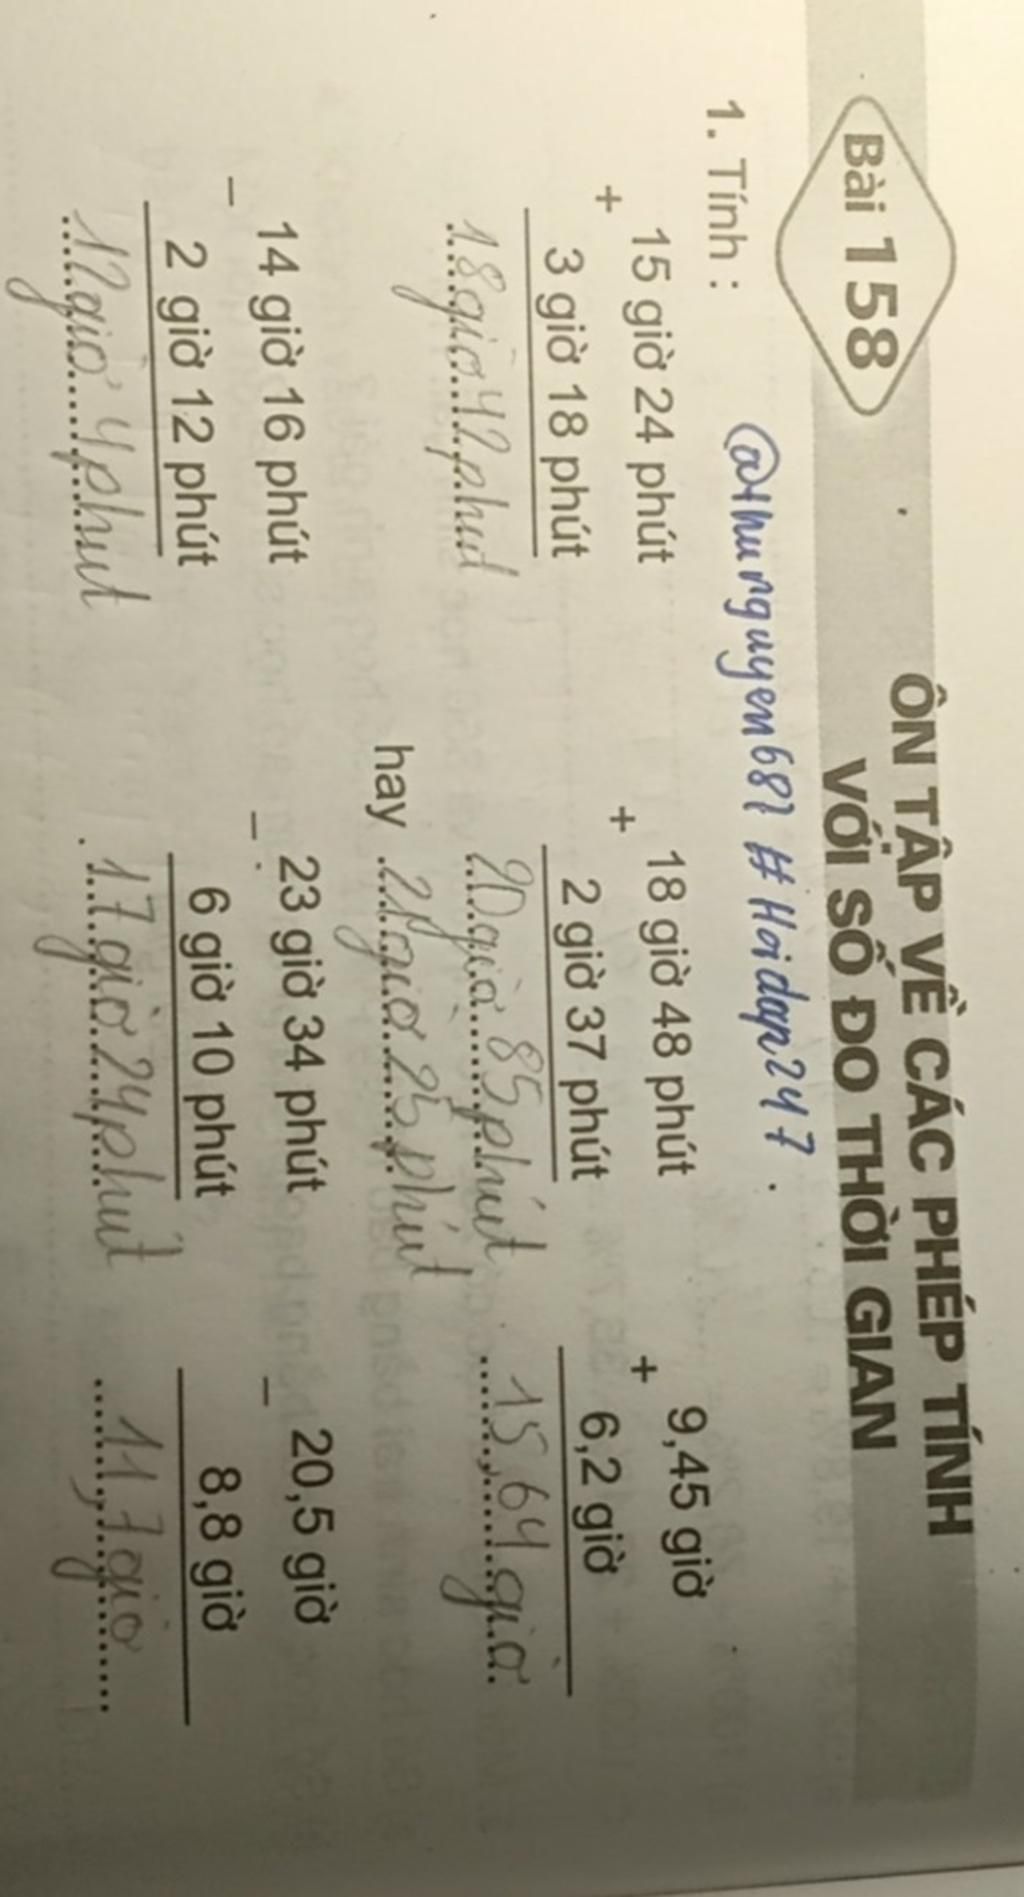 Bài 158
ÔN TẬP VỀ CÁC PHÉP TÍNH
VỚI SỐ ĐO THỜI GIAN
@thunguyen681 #Hoidap247
1. Tính :
+ 15 giờ 24 phút
3 giờ 18 phút
18 giờ 42 phút
+ 18 giờ 48 phút
2 giờ 37 phút
20 giờ 85 phút
hay 21 giờ 25 phút
+ 9,45 giờ
6,2 giờ
15,64 giờ
− 14 giờ 16 phút
2 giờ 12 phút
12 giờ 4 phút
− 23 giờ 34 phút
6 giờ 10 phút
17 giờ 24 phút
− 20,5 giờ
8,8 giờ
11,7 giờ